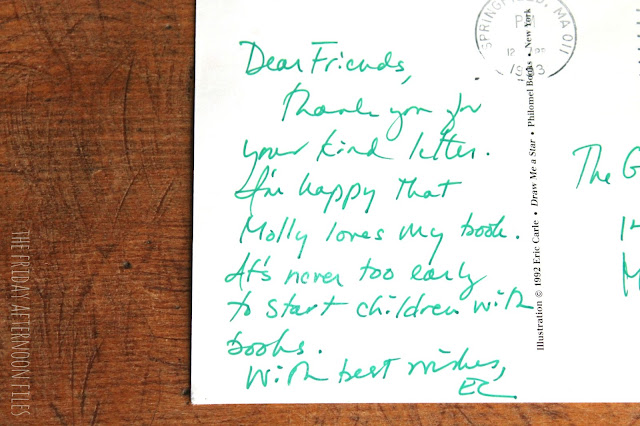 Dear Friends,
Thank you for
your kind letter.
I'm happy that
Molly loves my book.
It's never too early
to start children with
books.
With best wishes,
EC
SPRINGFIELD, MA 011
PM
12
1993
Illustration © 1992 Eric Carle • Draw Me a Star • Philomel Books • New York
The G
H
M
THE FRIDAY AFTERNOON FILES